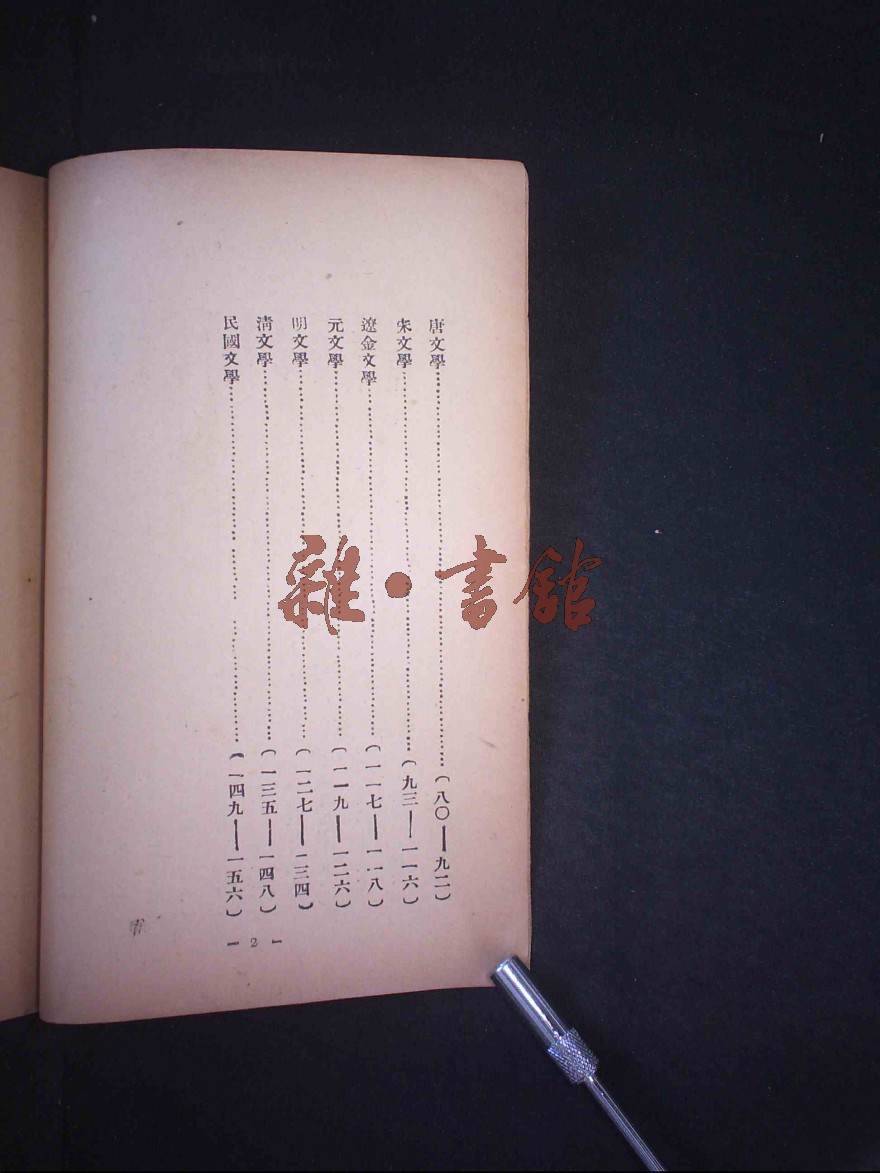 唐文學……………………(八〇——九二)
宋文學……………………(九三——一一六)
遼金文學……………………(一一七——一一八)
元文學……………………(一一九——一二六)
明文學……………………(一二七——一三四)
淸文學……………………(一三五——一四八)
民國文學……………………(一四九——一五六)
— 2 —
雜·書館